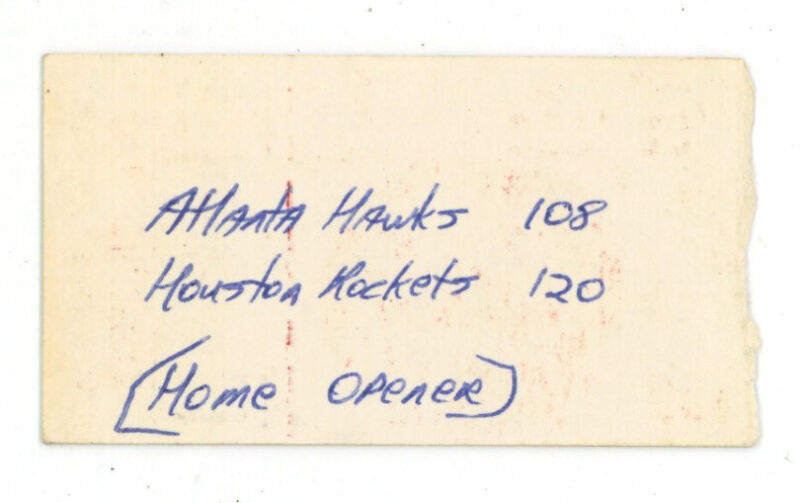 Atlanta Hawks 108
Houston Rockets 120
[Home Opener]